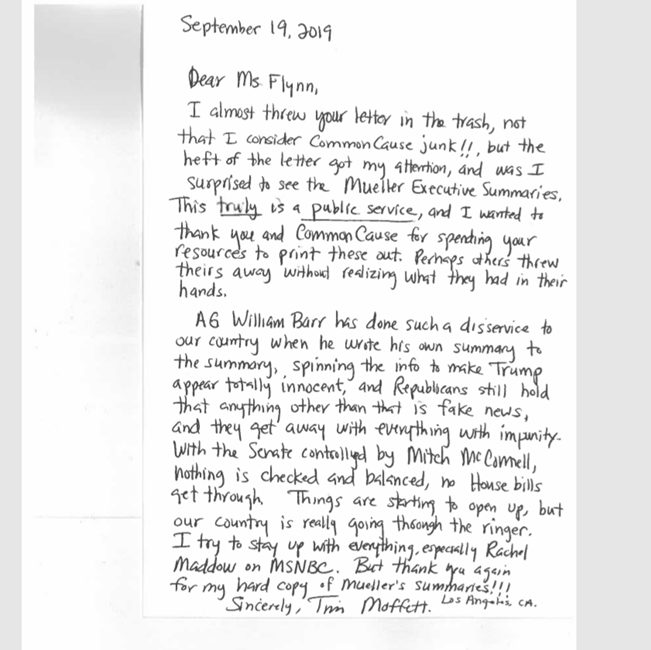 September 19, 2019
Dear Ms. Flynn,
I almost threw your letter in the trash, not
that I consider Common Cause junk!!, but the
heft of the letter got my attention, and was I
surprised to see the Mueller Executive Summaries.
This truly is a public service, and I wanted to
thank you and Common Cause for spending your
resources to print these out. Perhaps others threw
theirs away without realizing what they had in their
hands.
AG William Barr has done such a disservice to
our country when he wrote his own summary to
the summary, spinning the info to make Trump
appear totally innocent, and Republicans still hold
that anything other than that is fake news,
and they get away with everything with impunity.
With the Senate controllyd by Mitch McConnell,
nothing is checked and balanced, no House bills
get through. Things are starting to open up, but
our country is really going through the ringer.
I try to stay up with everything, especially Rachel
Maddow on MSNBC. But thank you again
for my hard copy of Mueller's summaries!!!
Sincerely, Moffett. Los Angeles, CA.